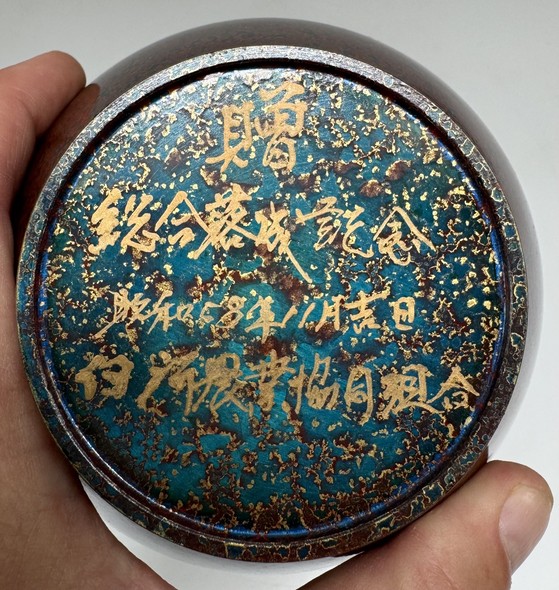 贈
総合落成記念
昭和58年11月吉日
農業協同組合